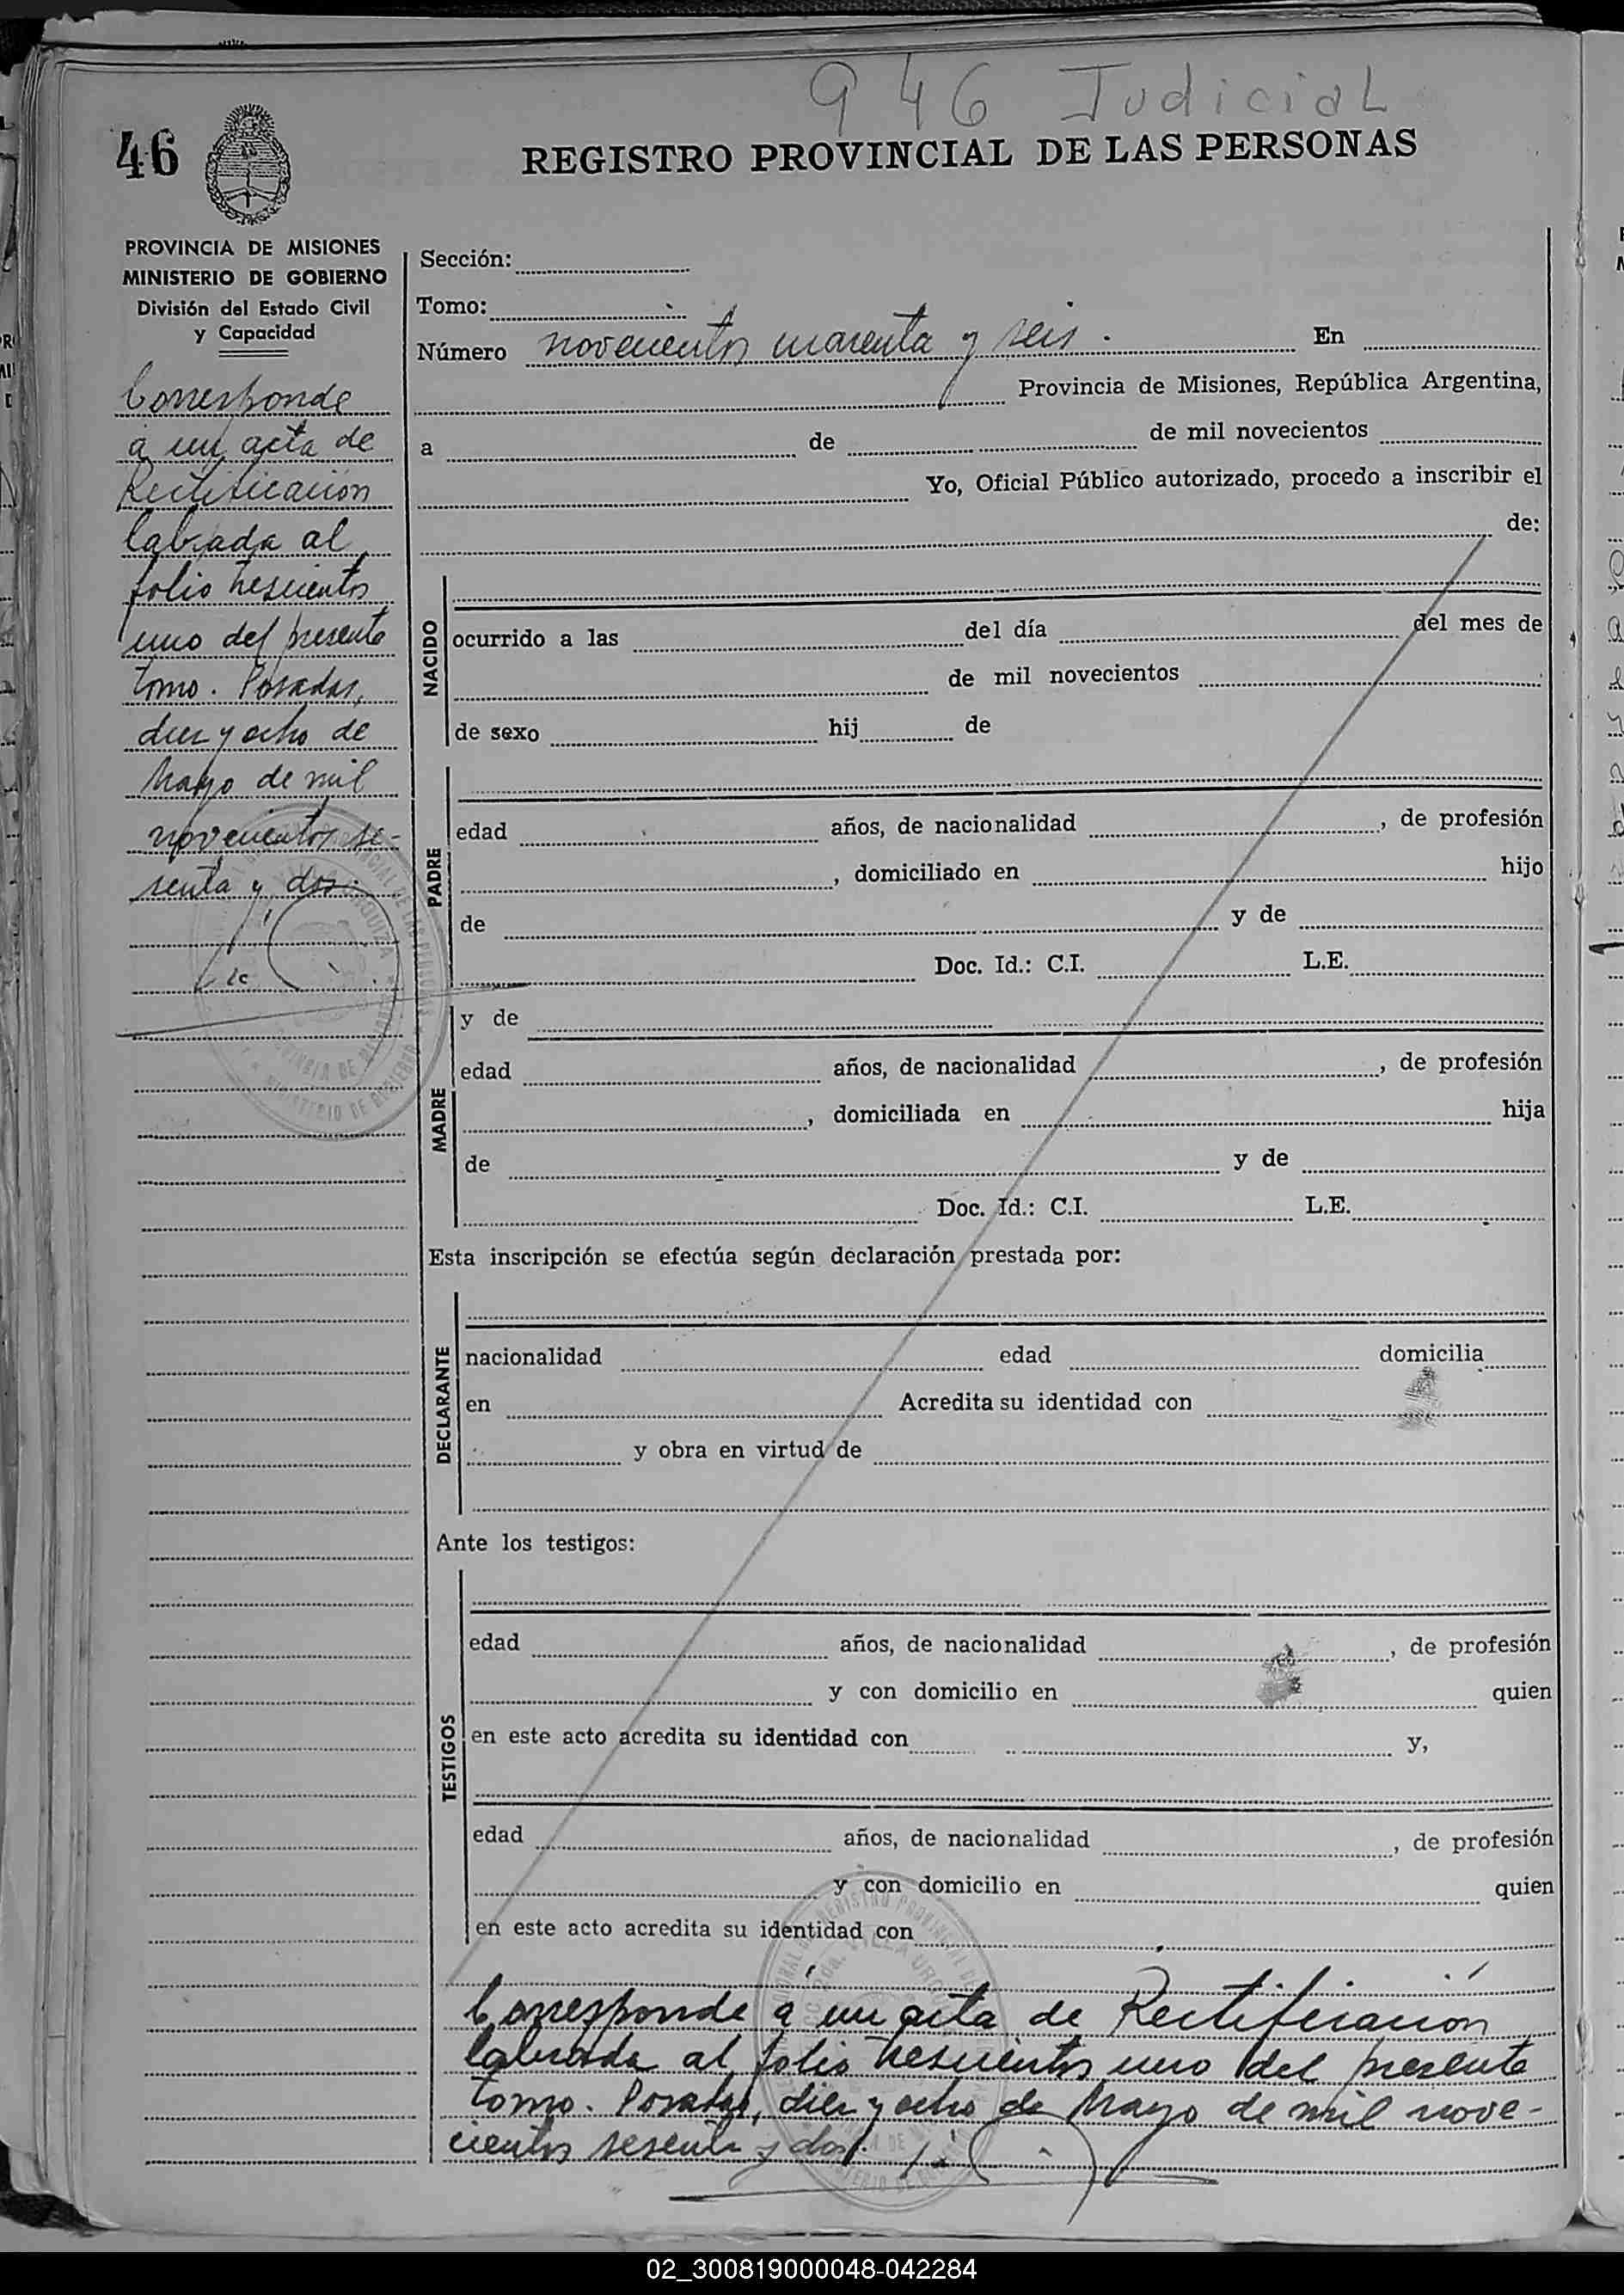 946 Judicial
46
REGISTRO PROVINCIAL DE LAS PERSONAS
PROVINCIA DE MISIONES
MINISTERIO DE GOBIERNO
División del Estado Civil
y Capacidad
Corresponde
a un acta de
Rectificación
labrada al
folio trescientos
uno del presente
tomo. Posadas,
diez y ocho de
Mayo de mil
novecientos se-
senta y dos.
Sección:
Tomo:
Número novecientos cuarenta y seis. En
Provincia de Misiones, República Argentina,
a de de mil novecientos
Yo, Oficial Público autorizado, procedo a inscribir el
de:
NACIDO
ocurrido a las del día del mes de
de mil novecientos
de sexo hij de
PADRE
edad años, de nacionalidad , de profesión
, domiciliado en hijo
de y de
Doc. Id.: C.I. L.E.
MADRE
y de
edad años, de nacionalidad , de profesión
, domiciliada en hija
de y de
Doc. Id.: C.I. L.E.
Esta inscripción se efectúa según declaración prestada por:
DECLARANTE
nacionalidad edad domicilia
en Acredita su identidad con
y obra en virtud de
Ante los testigos:
TESTIGOS
edad años, de nacionalidad , de profesión
y con domicilio en quien
en este acto acredita su identidad con y,
edad años, de nacionalidad , de profesión
y con domicilio en quien
en este acto acredita su identidad con
Corresponde a un acta de Rectificación
labrada al folio trescientos uno del presente
tomo. Posadas, diez y ocho de Mayo de mil nove-
cientos sesenta y dos.
02_300819000048-042284